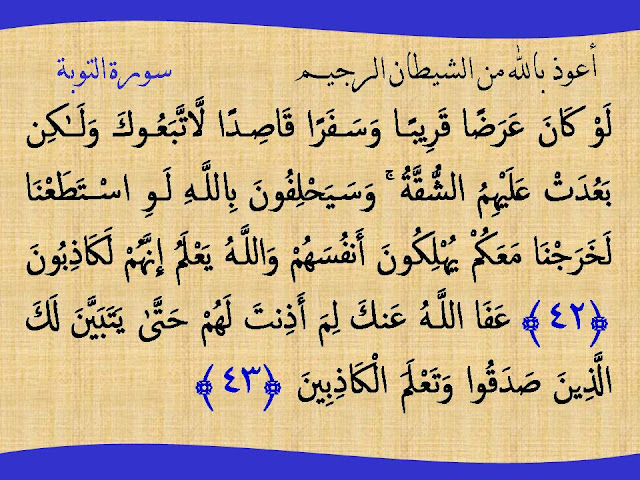 أعوذ بالله من الشيطان الرجيم سورة التوبة
لَوْ كَانَ عَرَضًا قَرِيبًا وَسَفَرًا قَاصِدًا لَّاتَّبَعُوكَ وَلَـٰكِن
بَعُدَتْ عَلَيْهِمُ الشُّقَّةُ ۚ وَسَيَحْلِفُونَ بِاللَّـهِ لَوِ اسْتَطَعْنَا
لَخَرَجْنَا مَعَكُمْ يُهْلِكُونَ أَنفُسَهُمْ وَاللَّـهُ يَعْلَمُ إِنَّهُمْ لَكَاذِبُونَ
﴿٤٢﴾ عَفَا اللَّـهُ عَنكَ لِمَ أَذِنتَ لَهُمْ حَتَّىٰ يَتَبَيَّنَ لَكَ
الَّذِينَ صَدَقُوا وَتَعْلَمَ الْكَاذِبِينَ ﴿٤٣﴾